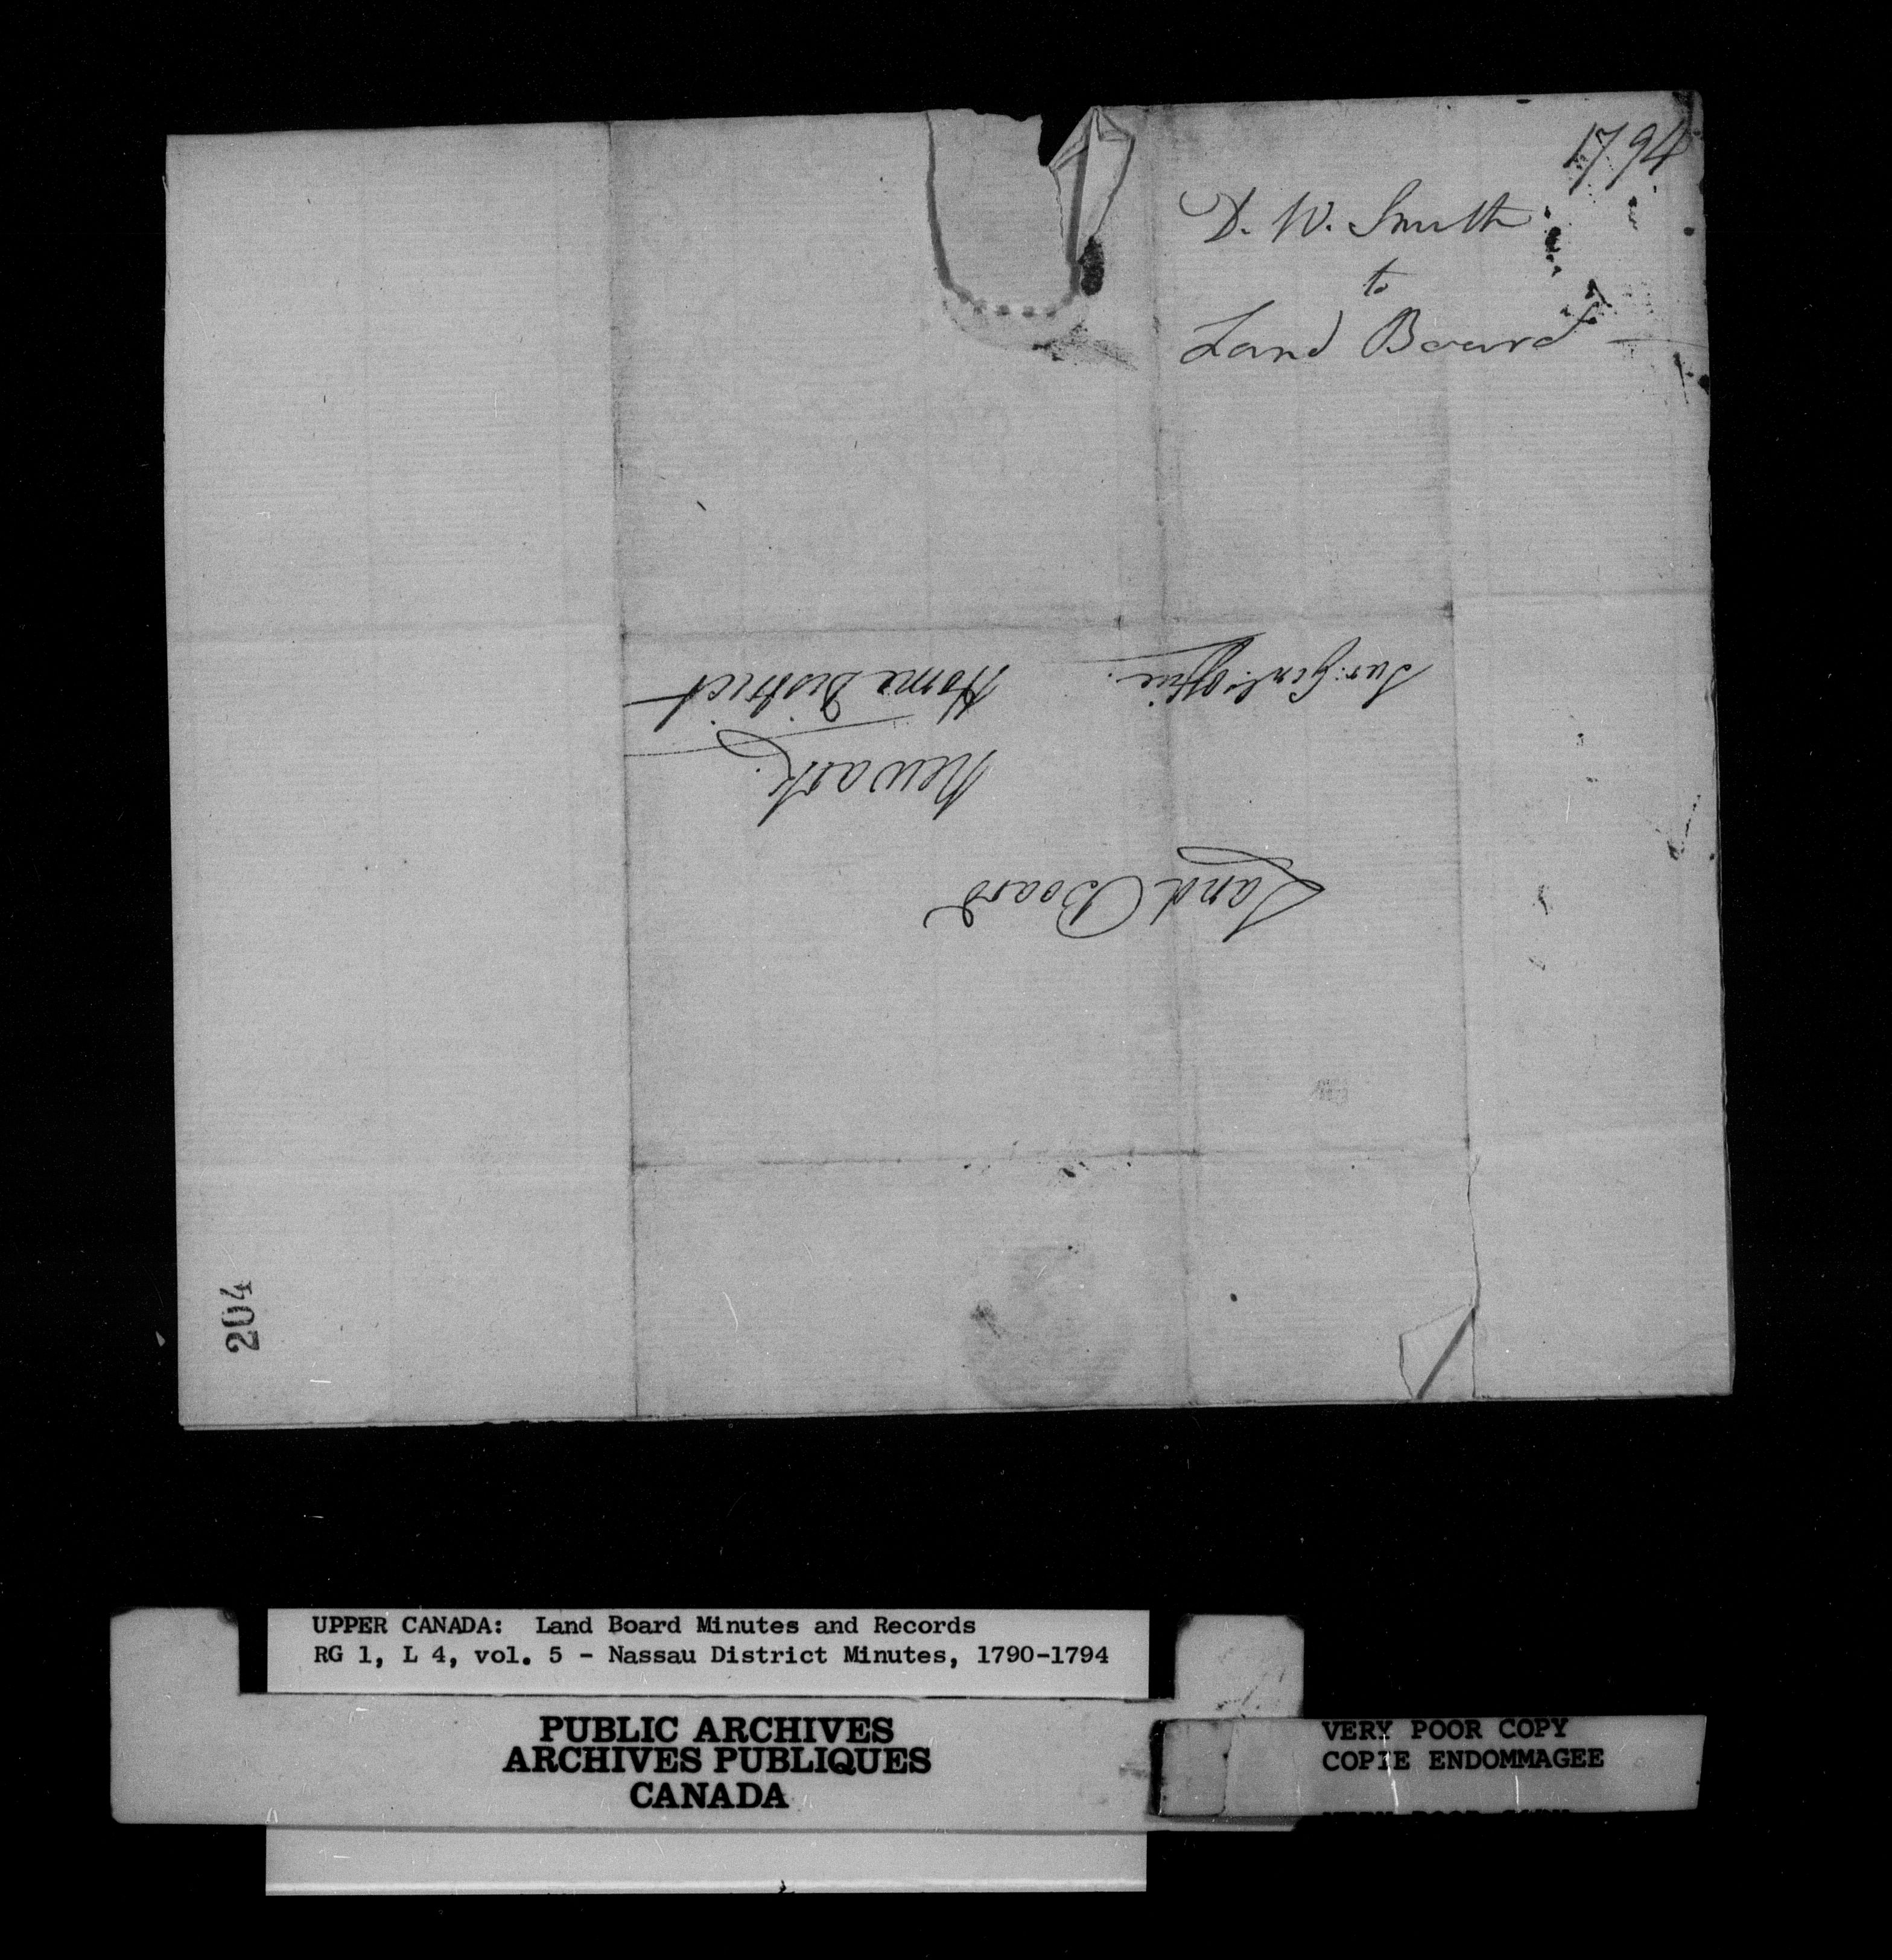 1794
D. W. Smith
to
Land Board
Land Board
Newark.
Home District
Sur: Genl: Office.
204
UPPER CANADA: Land Board Minutes and Records
RG 1, L 4, vol. 5 - Nassau District Minutes, 1790-1794
PUBLIC ARCHIVES
ARCHIVES PUBLIQUES
CANADA
VERY POOR COPY
COPIE ENDOMMAGEE